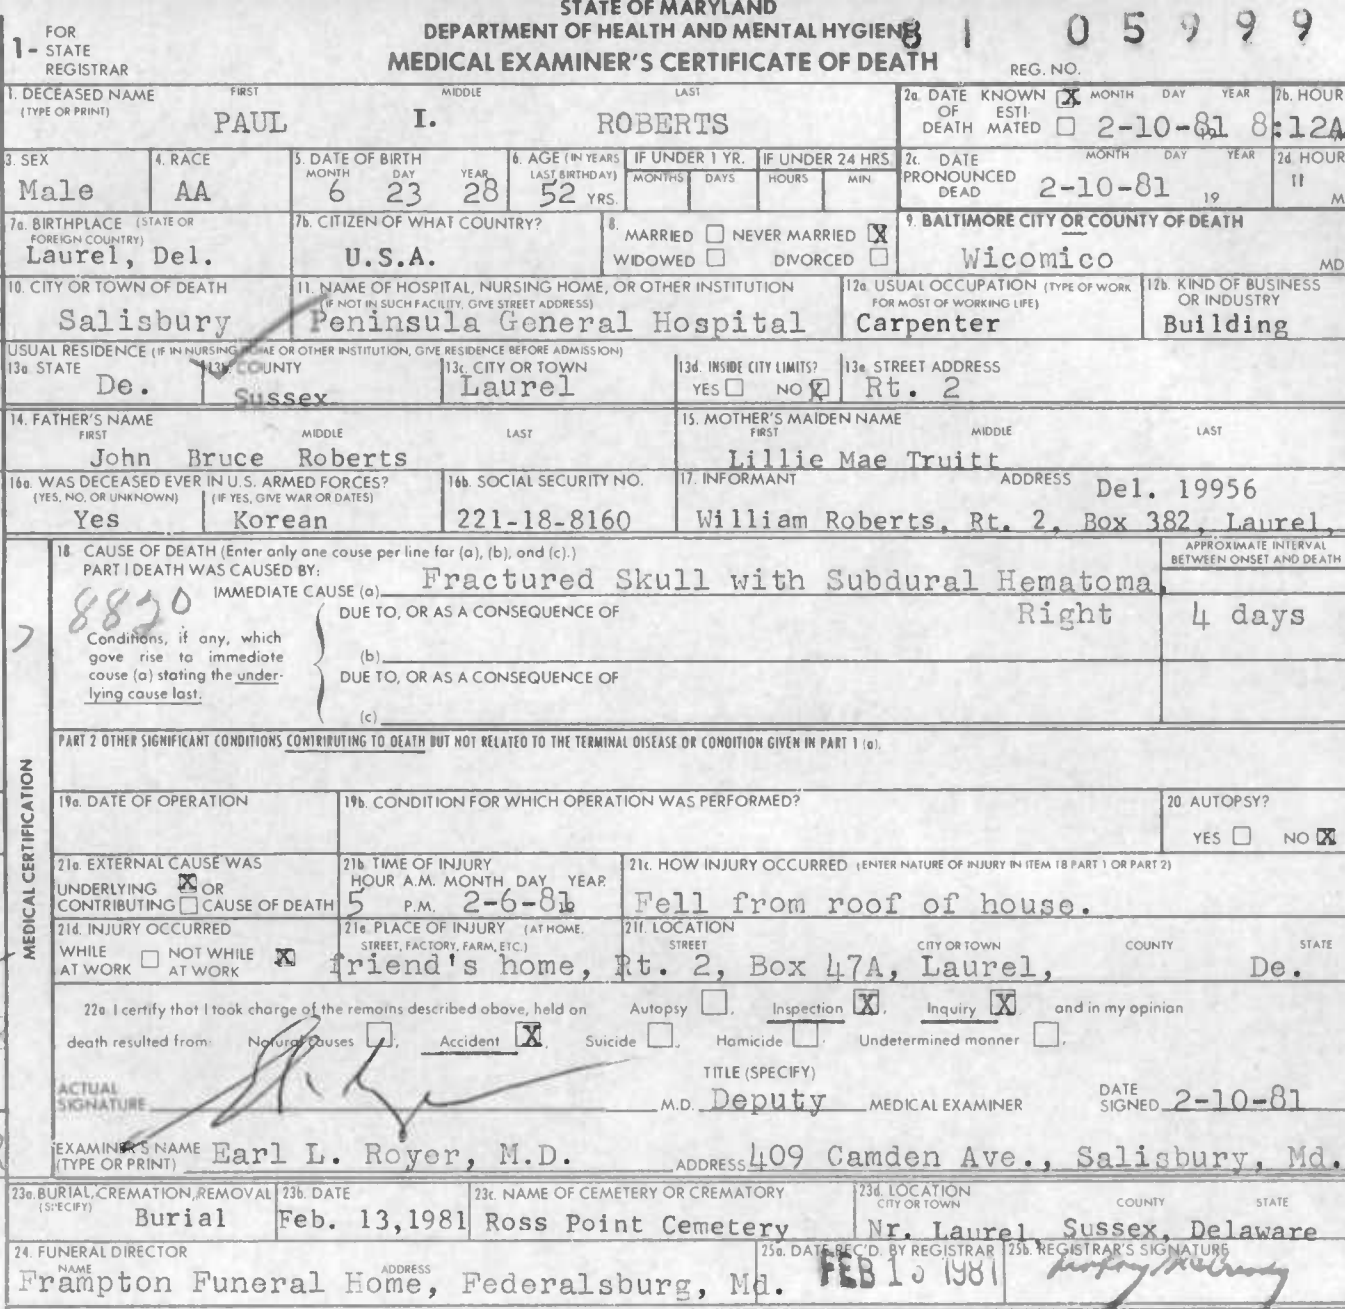 STATE OF MARYLAND
DEPARTMENT OF HEALTH AND MENTAL HYGIENE
MEDICAL EXAMINER'S CERTIFICATE OF DEATH
1- FOR STATE REGISTRAR
81 05999
REG. NO.
1. DECEASED NAME (TYPE OR PRINT) FIRST MIDDLE LAST
PAUL I. ROBERTS
2a. DATE OF DEATH KNOWN X ESTIMATED MONTH DAY YEAR 2-10-81
2b. HOUR 8:12A
3. SEX Male
4. RACE AA
5. DATE OF BIRTH MONTH DAY YEAR 6 23 28
6. AGE (IN YEARS LAST BIRTHDAY) 52 YRS.
IF UNDER 1 YR. MONTHS DAYS
IF UNDER 24 HRS. HOURS MIN.
2c. DATE PRONOUNCED DEAD MONTH DAY YEAR 2-10-81 19
2d. HOUR " M
7a. BIRTHPLACE (STATE OR FOREIGN COUNTRY) Laurel, Del.
7b. CITIZEN OF WHAT COUNTRY? U.S.A.
8. MARRIED NEVER MARRIED X WIDOWED DIVORCED
9. BALTIMORE CITY OR COUNTY OF DEATH Wicomico MD
10. CITY OR TOWN OF DEATH Salisbury
11. NAME OF HOSPITAL, NURSING HOME, OR OTHER INSTITUTION (IF NOT IN SUCH FACILITY, GIVE STREET ADDRESS) Peninsula General Hospital
12a. USUAL OCCUPATION (TYPE OF WORK FOR MOST OF WORKING LIFE) Carpenter
12b. KIND OF BUSINESS OR INDUSTRY Building
USUAL RESIDENCE (IF IN NURSING HOME OR OTHER INSTITUTION, GIVE RESIDENCE BEFORE ADMISSION)
13a. STATE De.
13b. COUNTY Sussex
13c. CITY OR TOWN Laurel
13d. INSIDE CITY LIMITS? YES NO X
13e. STREET ADDRESS Rt. 2
14. FATHER'S NAME FIRST MIDDLE LAST
John Bruce Roberts
15. MOTHER'S MAIDEN NAME FIRST MIDDLE LAST
Lillie Mae Truitt
16a. WAS DECEASED EVER IN U.S. ARMED FORCES? (YES, NO, OR UNKNOWN) Yes (IF YES, GIVE WAR OR DATES) Korean
16b. SOCIAL SECURITY NO. 221-18-8160
17. INFORMANT ADDRESS Del. 19956
William Roberts, Rt. 2, Box 382, Laurel,
MEDICAL CERTIFICATION
18. CAUSE OF DEATH (Enter only one cause per line for (a), (b), and (c).)
APPROXIMATE INTERVAL BETWEEN ONSET AND DEATH
PART I DEATH WAS CAUSED BY:
IMMEDIATE CAUSE (a) Fractured Skull with Subdural Hematoma,
8820
DUE TO, OR AS A CONSEQUENCE OF Right 4 days
Conditions, if any, which gave rise to immediate cause (a) stating the underlying cause last.
(b)
DUE TO, OR AS A CONSEQUENCE OF
(c)
PART 2 OTHER SIGNIFICANT CONDITIONS CONTRIBUTING TO DEATH BUT NOT RELATED TO THE TERMINAL DISEASE OR CONDITION GIVEN IN PART 1 (a).
19a. DATE OF OPERATION
19b. CONDITION FOR WHICH OPERATION WAS PERFORMED?
20. AUTOPSY? YES NO X
21a. EXTERNAL CAUSE WAS UNDERLYING X OR CONTRIBUTING CAUSE OF DEATH
21b. TIME OF INJURY HOUR A.M. MONTH DAY YEAR 5 P.M. 2-6-81
21c. HOW INJURY OCCURRED (ENTER NATURE OF INJURY IN ITEM 18 PART 1 OR PART 2)
Fell from roof of house.
21d. INJURY OCCURRED WHILE AT WORK NOT WHILE AT WORK X
21e. PLACE OF INJURY (AT HOME, STREET, FACTORY, FARM, ETC.)
21f. LOCATION STREET CITY OR TOWN COUNTY STATE
friend's home, Rt. 2, Box 47A, Laurel, De.
22a. I certify that I took charge of the remains described above, held on Autopsy , Inspection X, Inquiry X, and in my opinion
death resulted from: Natural causes , Accident X, Suicide , Homicide , Undetermined manner .
ACTUAL SIGNATURE M.D. TITLE (SPECIFY) Deputy MEDICAL EXAMINER DATE SIGNED 2-10-81
EXAMINER'S NAME (TYPE OR PRINT) Earl L. Royer, M.D. ADDRESS 409 Camden Ave., Salisbury, Md.
23a. BURIAL, CREMATION, REMOVAL (SPECIFY) Burial
23b. DATE Feb. 13, 1981
23c. NAME OF CEMETERY OR CREMATORY Ross Point Cemetery
23d. LOCATION CITY OR TOWN COUNTY STATE
Nr. Laurel, Sussex, Delaware
24. FUNERAL DIRECTOR NAME ADDRESS
Frampton Funeral Home, Federalsburg, Md.
25a. DATE REC'D. BY REGISTRAR FEB 1 1981
25b. REGISTRAR'S SIGNATURE